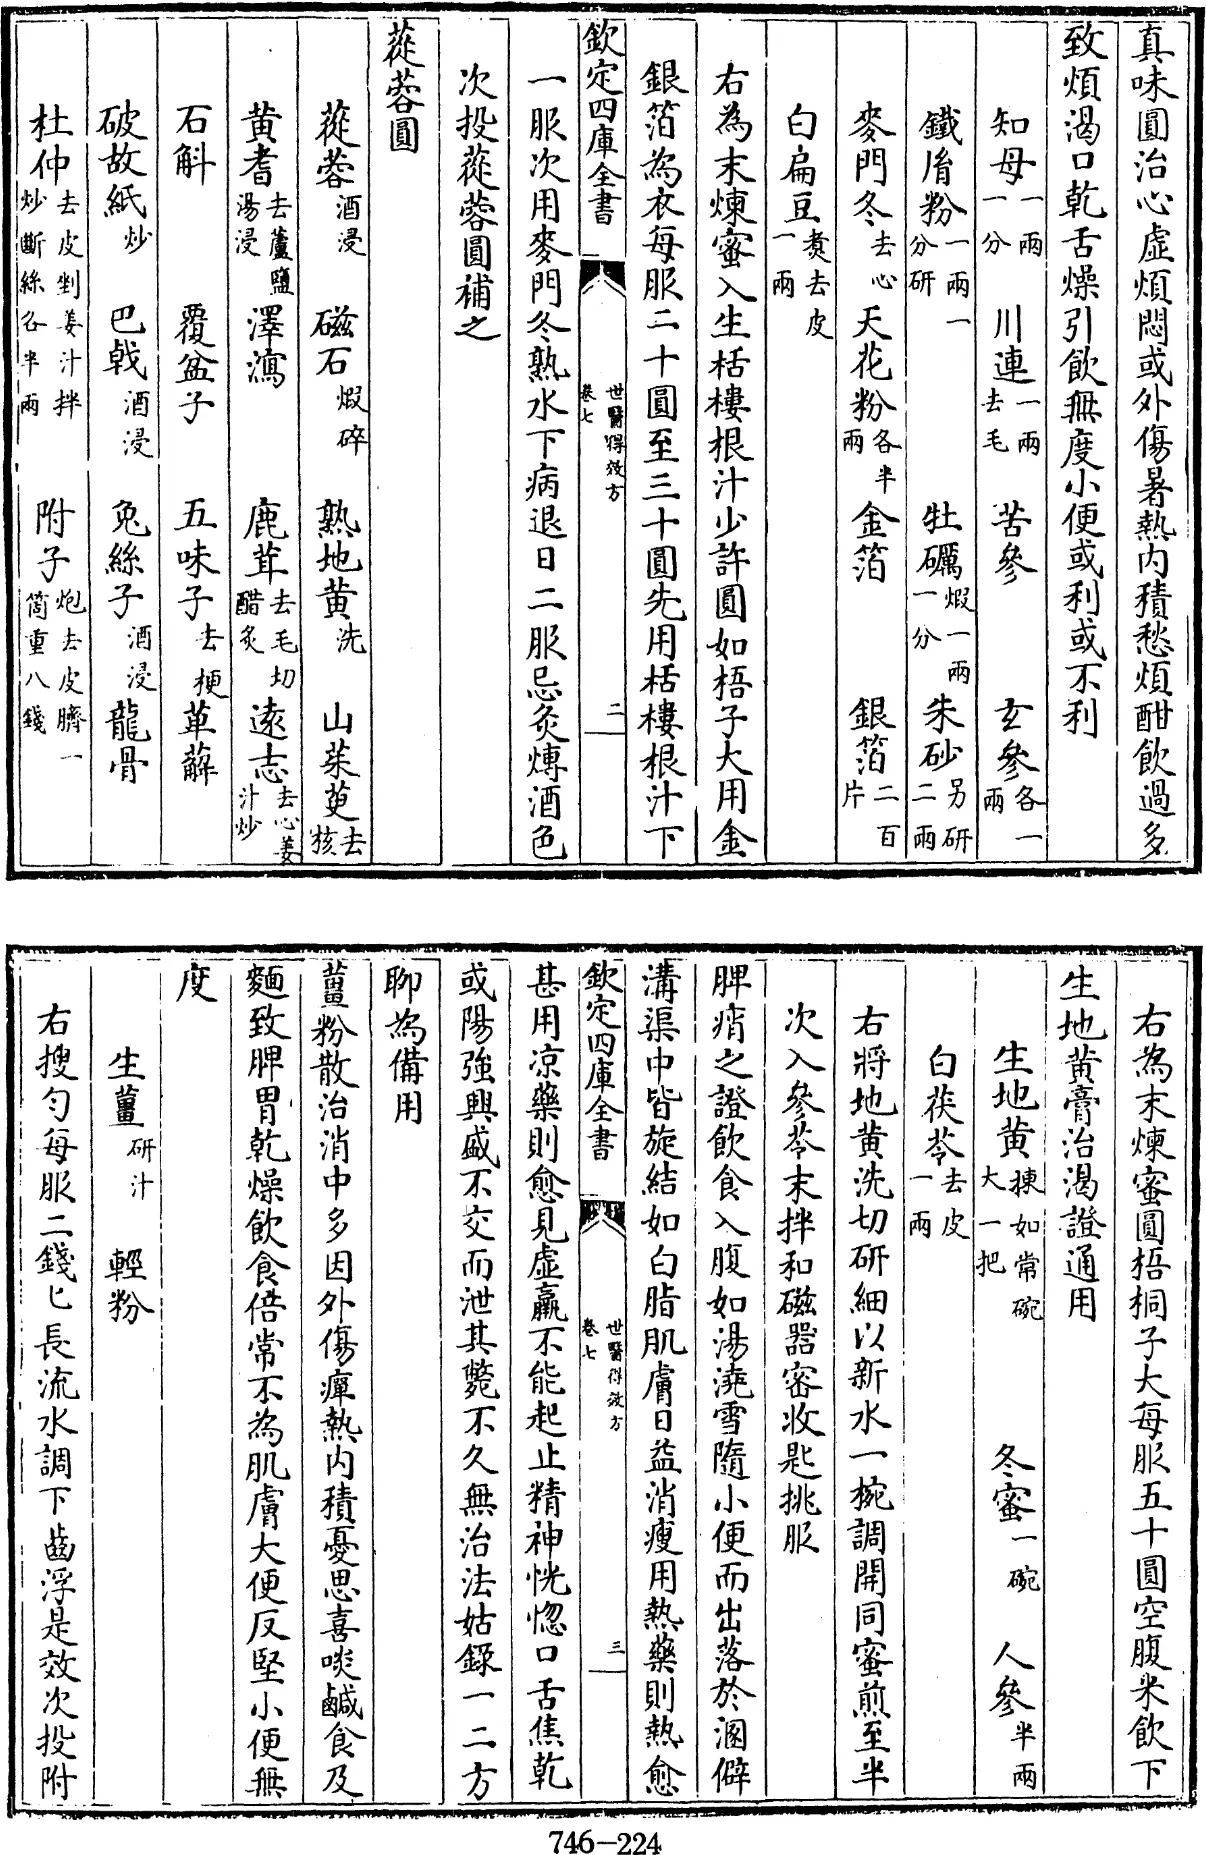 真味圓治心虚煩悶或外傷暑熱内積愁煩酣飲過多
致煩渴口乾舌燥引飲無度小便或利或不利
知母一兩一分 川連一兩去毛 苦參 玄參各一兩
鐵胤粉一兩一分研 牡礪煅一兩一分 朱砂另研二兩
麥門冬去心 天花粉各半兩 金箔 銀箔二百片
白扁豆煑去皮一兩
右為末煉蜜入生栝樓根汁少許圓如梧子大用金
銀箔為衣每服二十圓至三十圓先用栝樓根汁下
欽定四庫全書 世醫得效方 卷七 二
一服次用麥門冬熟水下病退日二服忌灸煿酒色
次投蓯蓉圓補之
蓯蓉圓
蓯蓉酒浸 磁石煅碎 熟地黄洗 山茱萸去核
黄耆去蘆鹽湯浸 澤瀉 鹿茸去毛切醋炙 遠志去心姜汁炒
石斛 覆盆子 五味子去梗 萆薢
破故紙炒 巴戟酒浸 兔絲子酒浸 龍骨
杜仲去皮剉姜汁拌炒斷絲各半兩 附子炮去皮臍一箇重八錢
右為末煉蜜圓梧桐子大每服五十圓空腹米飲下
生地黄膏治渴證通用
生地黄揀如常碗大一把 冬蜜一碗 人參半兩
白茯苓去皮一兩
右將地黄洗切研細以新水一椀調開同蜜煎至半
次入參苓末拌和磁器密收匙挑服
脾痟之證飲食入腹如湯澆雪隨小便而出落於溷僻
溝渠中皆旋結如白脂肌膚日益消瘦用熱藥則熱愈
欽定四庫全書 世醫得效方 卷七 三
甚用凉藥則愈見虚羸不能起止精神恍惚口舌焦乾
或陽強興盛不交而泄其斃不久無治法姑錄一二方
聊為備用
薑粉散治消中多因外傷癉熱内積憂思喜啖鹹食及
麵致脾胃乾燥飲食倍常不為肌膚大便反堅小便無
度
生薑研汁 輕粉
右搜勻每服二錢匕長流水調下齒浮是效次投附
746-224